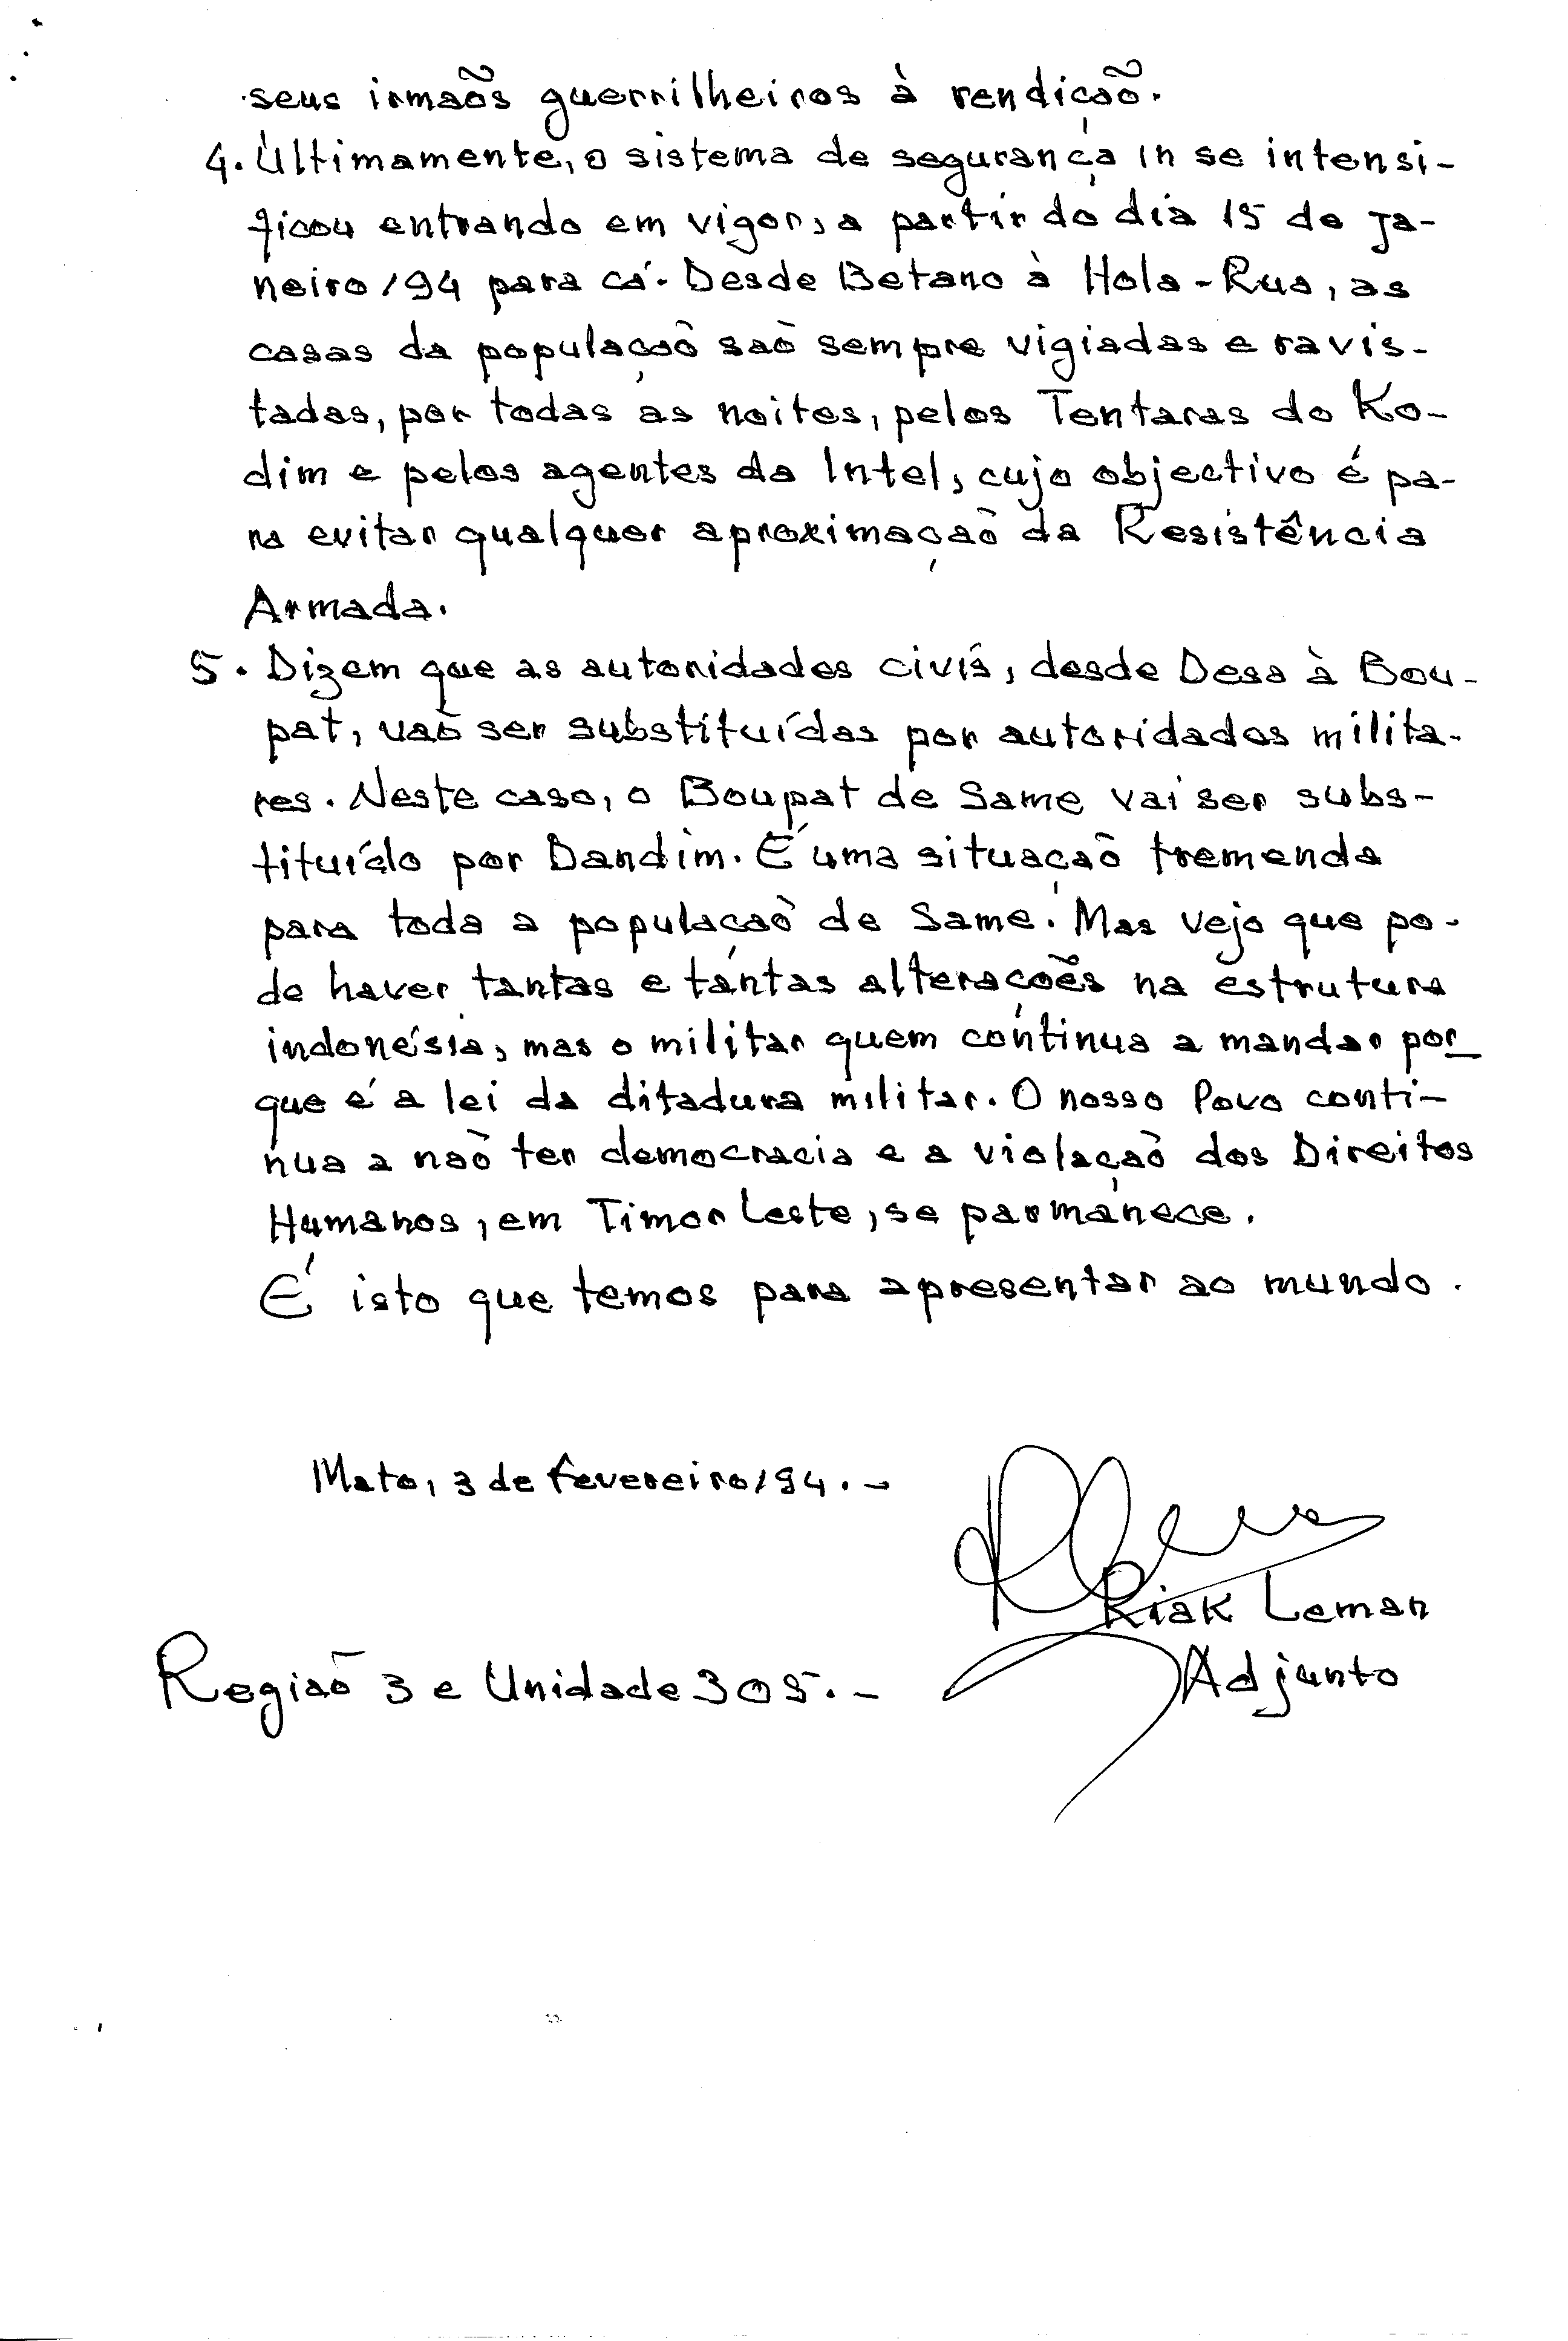 seus irmãos guerrilheiros à rendição.
4. Últimamente, o sistema de segurança in se intensi-
ficou entrando em vigor, a partir do dia 15 de Ja-
neiro/94 para cá. Desde Betano à Hola-Rua, as
casas da população são sempre vigiadas e ravis-
tadas, por todas as noites, pelos Tentaras do Ko-
dim e pelos agentes da Intel, cujo objectivo é pa-
ra evitar qualquer aproximação da Resistência
Armada.
5. Dizem que as autoridades civís, desde Desa à Bou-
pat, vão ser substituídas por autoridades milita-
res. Neste caso, o Boupat de Same vai ser subs-
tituído por Dandim. É uma situação tremenda
para toda a população de Same. Mas vejo que po-
de haver tantas e tantas alterações na estrutura
indonésia, mas o militar quem continua a mandar por
que é a lei da ditadura militar. O nosso Povo conti-
nua a não ter democracia e a violação dos Direitos
Humanos, em Timor Leste, se parmanece.
É isto que temos para apresentar ao mundo.
Mato, 3 de fevereiro/94.-
Riak Leman
Adjunto
Região 3 e Unidade 305.-